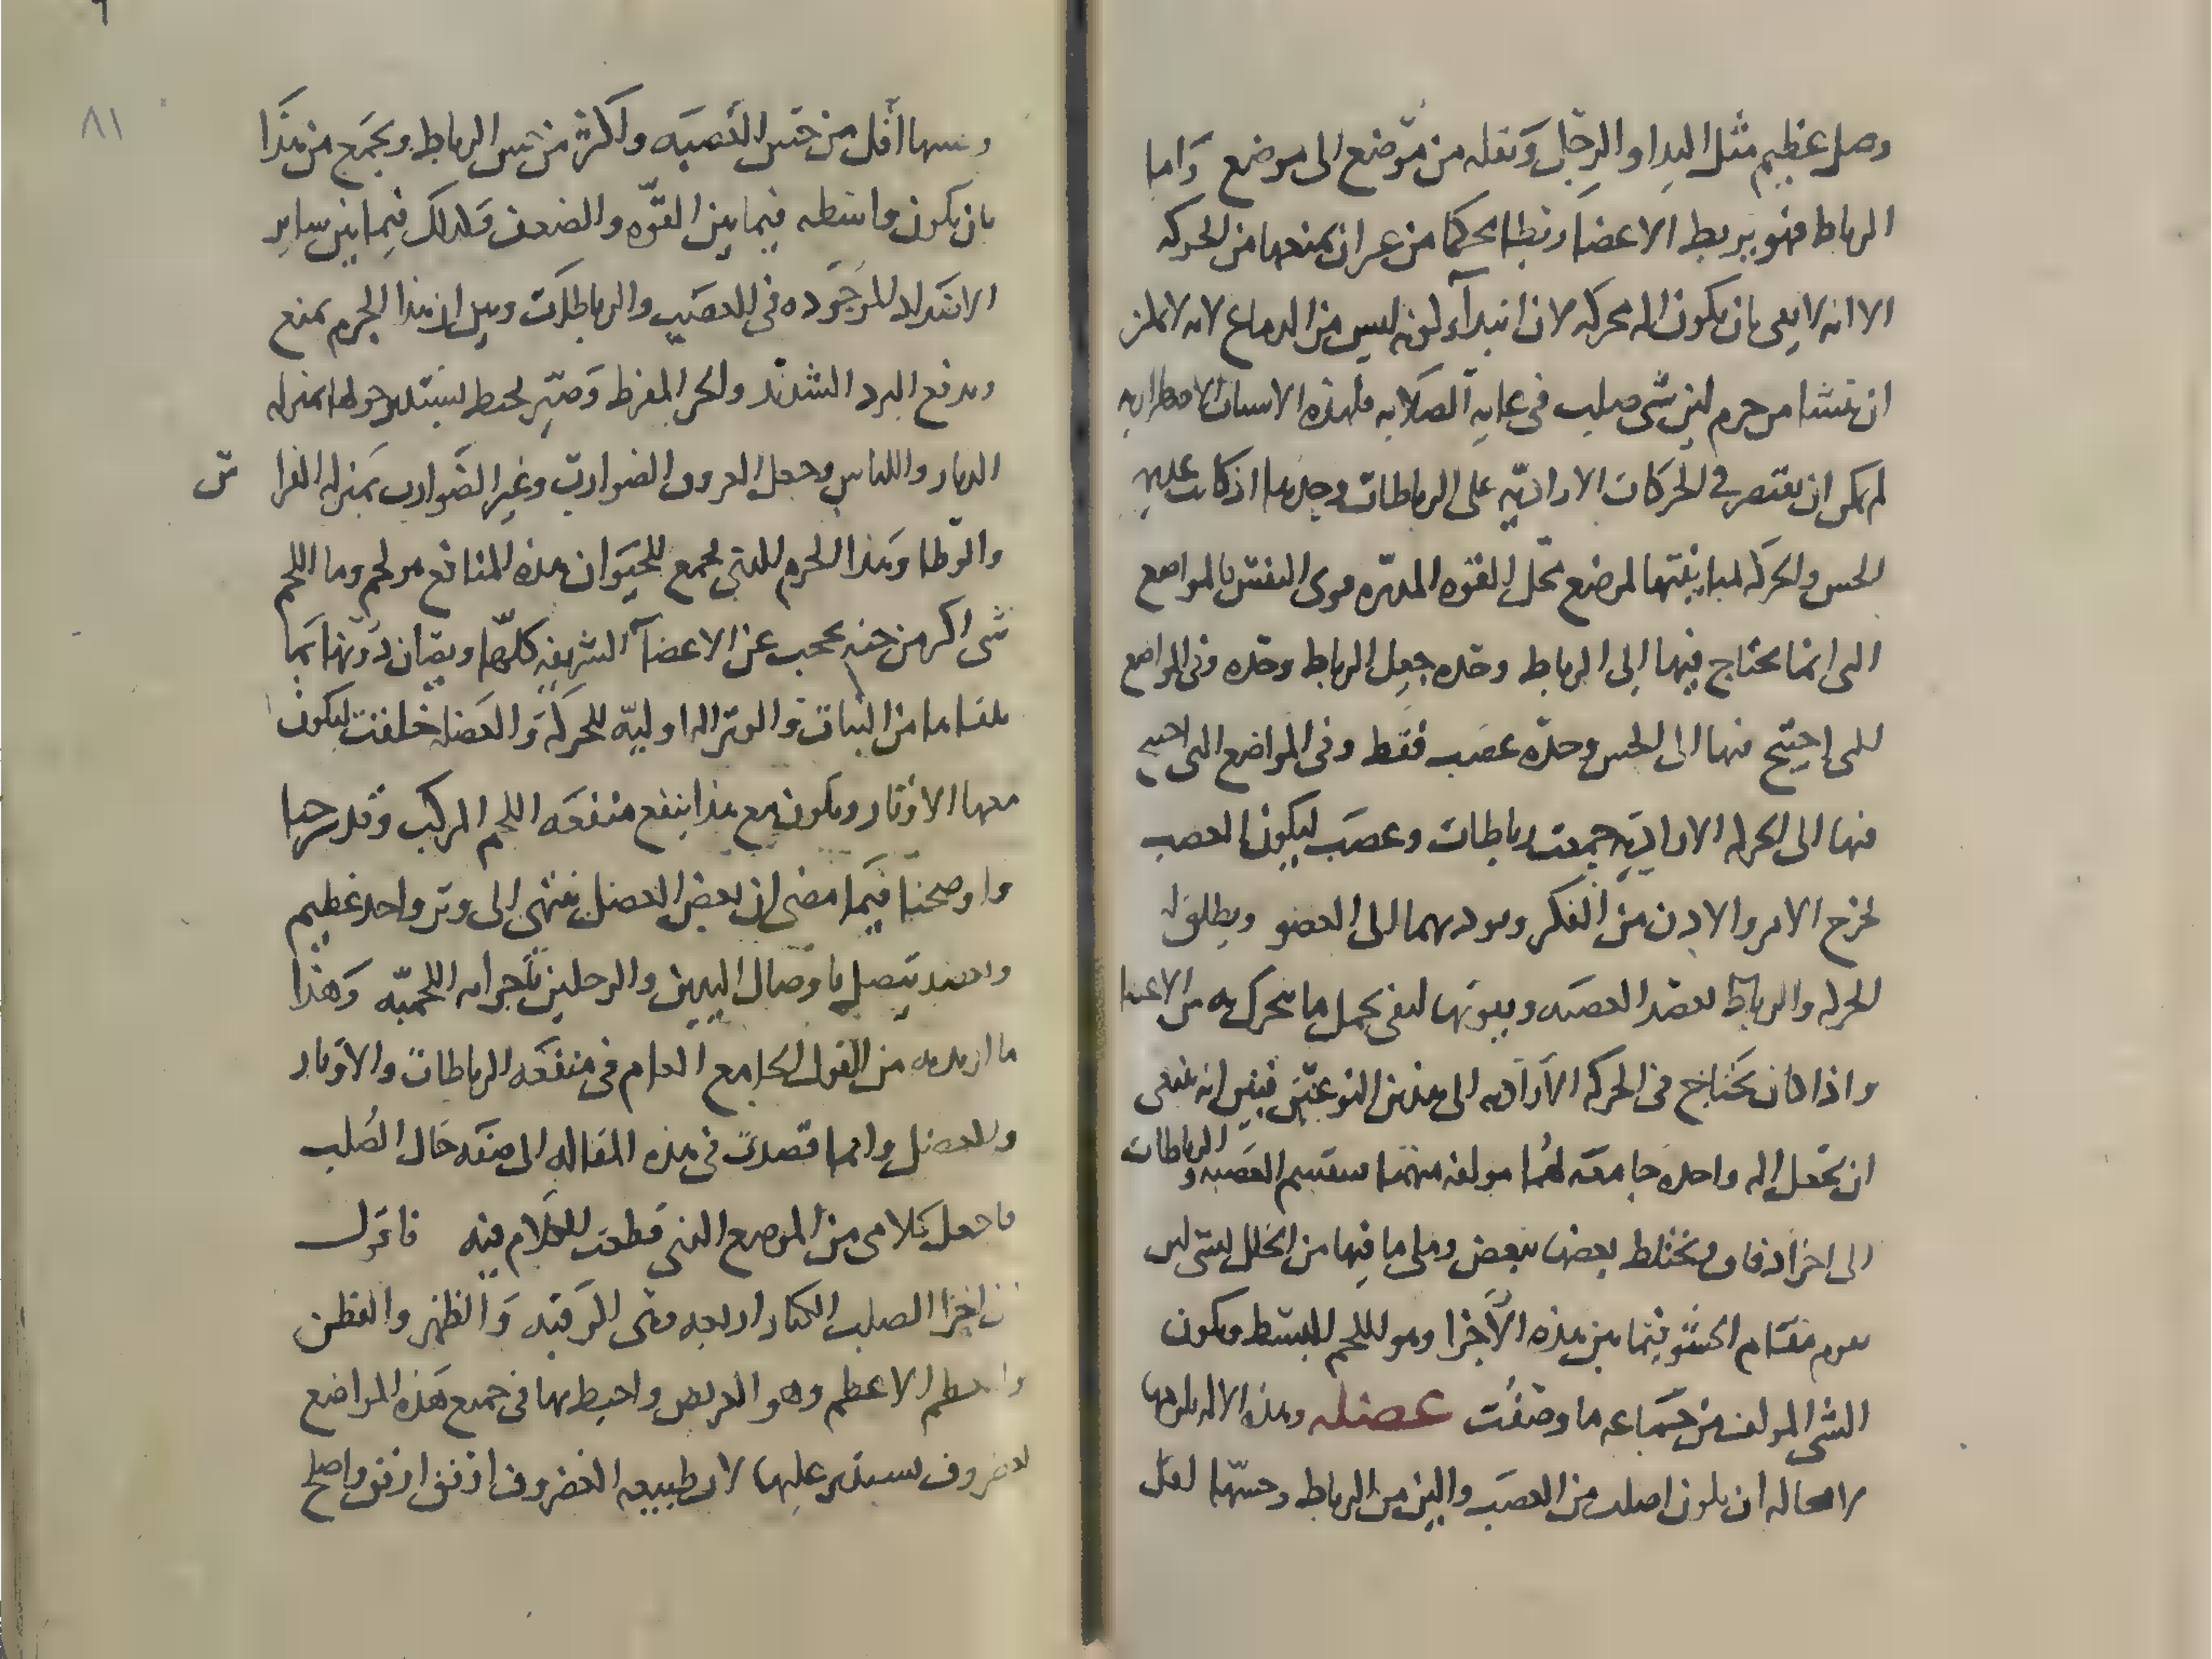 وصل عظيم مثل اليد او الرجل ونقله من موضع الى موضع واما
الرباط فهو يربط الاعضا ربطا محكما من غير ان يمنعها من الحركه
الا انه لا يفى بان يكون اله محركه لان ابتدآ كونه ليس من الدماغ لانه لا يمكن
ان ينشا من جرم لين شى صلب فى غايه الصلابه فلهذه الاسباب الاضطراريه
لم يمكن ان يقتصر فى الحركات الاراديه على الرباطات وحدها اذ كانت عديمه
الحس والحركه لمباينتها لموضع محل القوه المدبره قوى النفس فالمواضع
التى انما يحتاج فيها الى الرباط وحده جعل الرباط وحده وفى المواضع
التى احتيج فيها الى الحس وحده عصب فقط وفى المواضع التى احتيج
فيها الى الحركه الاراديه جمعت رباطات وعصب ليكون العصب
يخرج الامر والاذن من الفكر ويوديهما الى العضو ويطلق له
الحركه والرباط يعضد العصبه ويقويها لتفى بحمل ما يتحرك به من الاعضا
واذا كان يحتاج فى الحركه الاراديه الى هذين النوعين فبين انه ينبغى
ان تجعل اله واحده جامعه لهما مولفه منهما سنقسم العصبه والرباطات
الى اجزا دقاق ويختلط بعضها ببعض وملى ما فيها من الخلل بشى لين
يقوم مقام الحشو فيما بين هذه الاجزا وهو اللحم البسيط ويكون
الشى المولف من جماعه ما وصفت عضله وهذه الاله يلزمها
لا محاله ان يكون اصلب من العصب والين من الرباط وحسها اقل
وحسها اقل من حس العصبه واكثر من حس الرباط ويجمع من هذا
بان يكون واسطه فيما بين القوه والضعف وكذلك فيما بين ساير
الاضداد الموجوده فى العصب والرباطات وقيل ان هذا الجرم يمنع
ويدفع البرد الشديد والحر المفرط وصير يحيط يستدير حولها بمنزله
الدثار واللباس وجعل العروق الضوارب وغير الضوارب بمنزله الفرا ش
والوطا وهذا الجرم الذى يجمع للحيوان هذه المنافع هو لحم وما اللحم
شى اكثر من جنه يحجب عن الاعضآ الشريفه كلها ويصان دونها بما
يلقاها من النبات والوتر اله اوليه للحركه والعضله خلقت ليكون
معها الاوتار ويكون مع هذا ينفع منفعه اللحم المركب وقد شرحنا
واوضحنا فيما مضى ان بعض العضل ينتهى الى وتر واحد عظيم
وبعضه يتصل باوصال اليدين والرجلين باجزايه اللحميه وهذا
ما اريده من القول الجامع العام فى منفعه الرباطات والاوتار
والعضل وانما قصدت فى هذه المقاله الى صفه حال الصلب
فاجعل كلامى من الموضع الذى قطعت الكلام فيه فاقول
ان اجزا الصلب الكبار اربعه وهى الرقبه والظهر والقطن
والعظم الاعظم وهو العريض واحيط بها فى جميع هذه المواضع
غضروف يستدير عليها لان طبيعه الغضروف اوفق اوفق واصلح
٨١